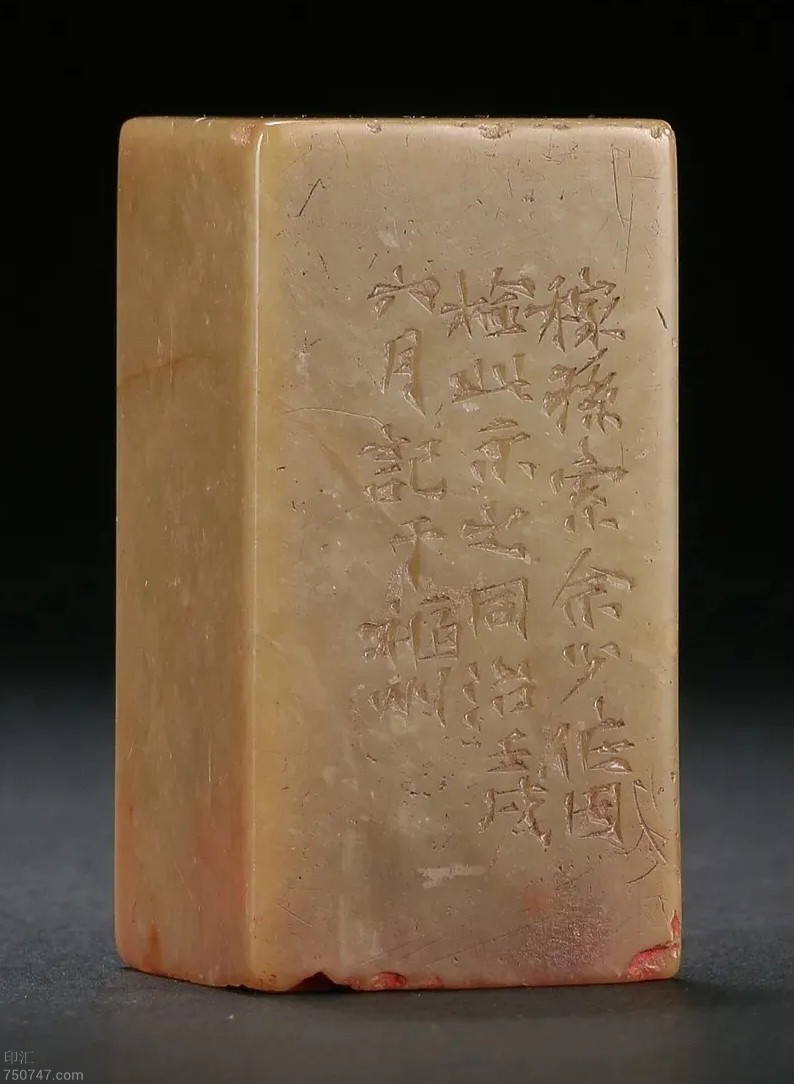 稼孫索余少作因
檢此示之同治壬戌
六月記于福州
印汇
750747.com